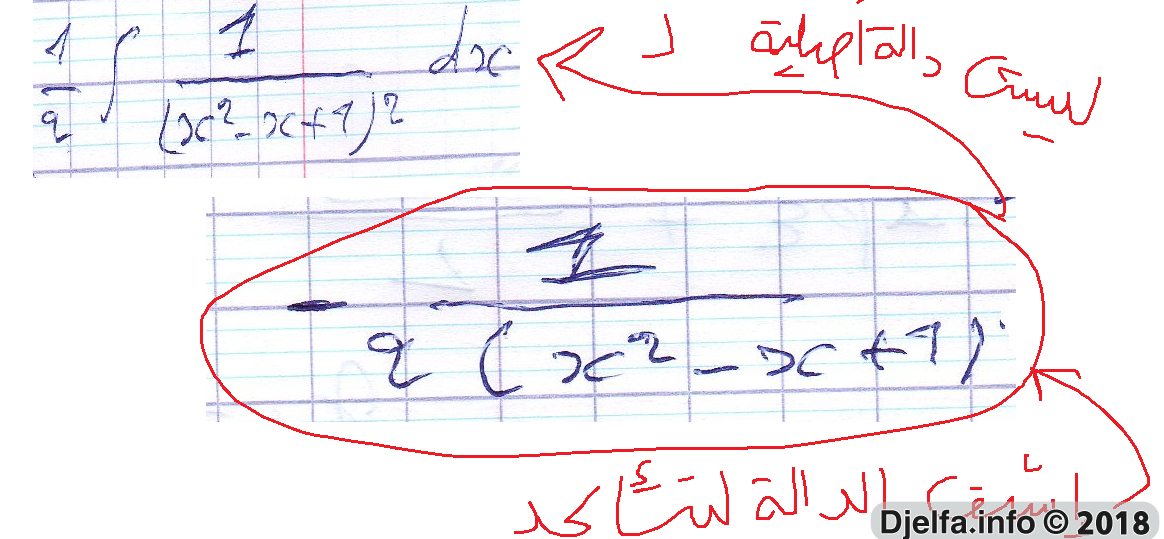 1/2 ∫ 1/(x²-x+1)² dx
ليست دالة أصلية لـ
- 1/2(x²-x+1)
إشتق الدالة لتتأكد
Djelfa.info © 2018